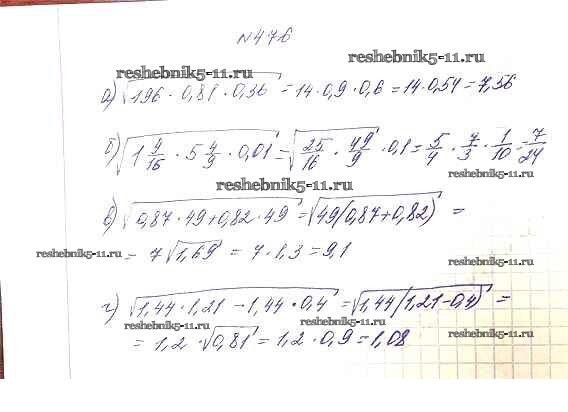 №476
reshebnik5-11.ru
reshebnik5-11.ru
а) √196 · 0,81 · 0,36 = 14 · 0,9 · 0,6 = 14 · 0,54 = 7,56
б) √1 9/16 · 5 4/9 · 0,01 = √25/16 · 49/9 · 0,1 = 5/4 · 7/3 · 1/10 = 7/24
reshebnik5-11.ru
в) √0,87 · 49 + 0,82 · 49 = √49(0,87+0,82) =
reshebnik5-11.ru
= 7√1,69 = 7 · 1,3 = 9,1
reshebnik5-11.ru
г) √1,44 · 1,21 - 1,44 · 0,4 = √1,44(1,21-0,4) =
reshebnik5-11.ru
reshebnik5-11.ru
= 1,2 · √0,81 = 1,2 · 0,9 = 1,08
reshebnik5-11.ru